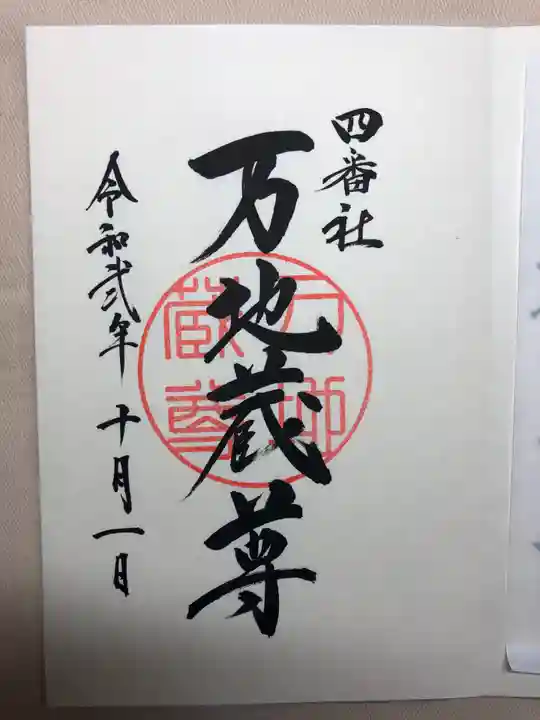 四番社
万地蔵尊
令和弐年十月一日
万地
蔵尊